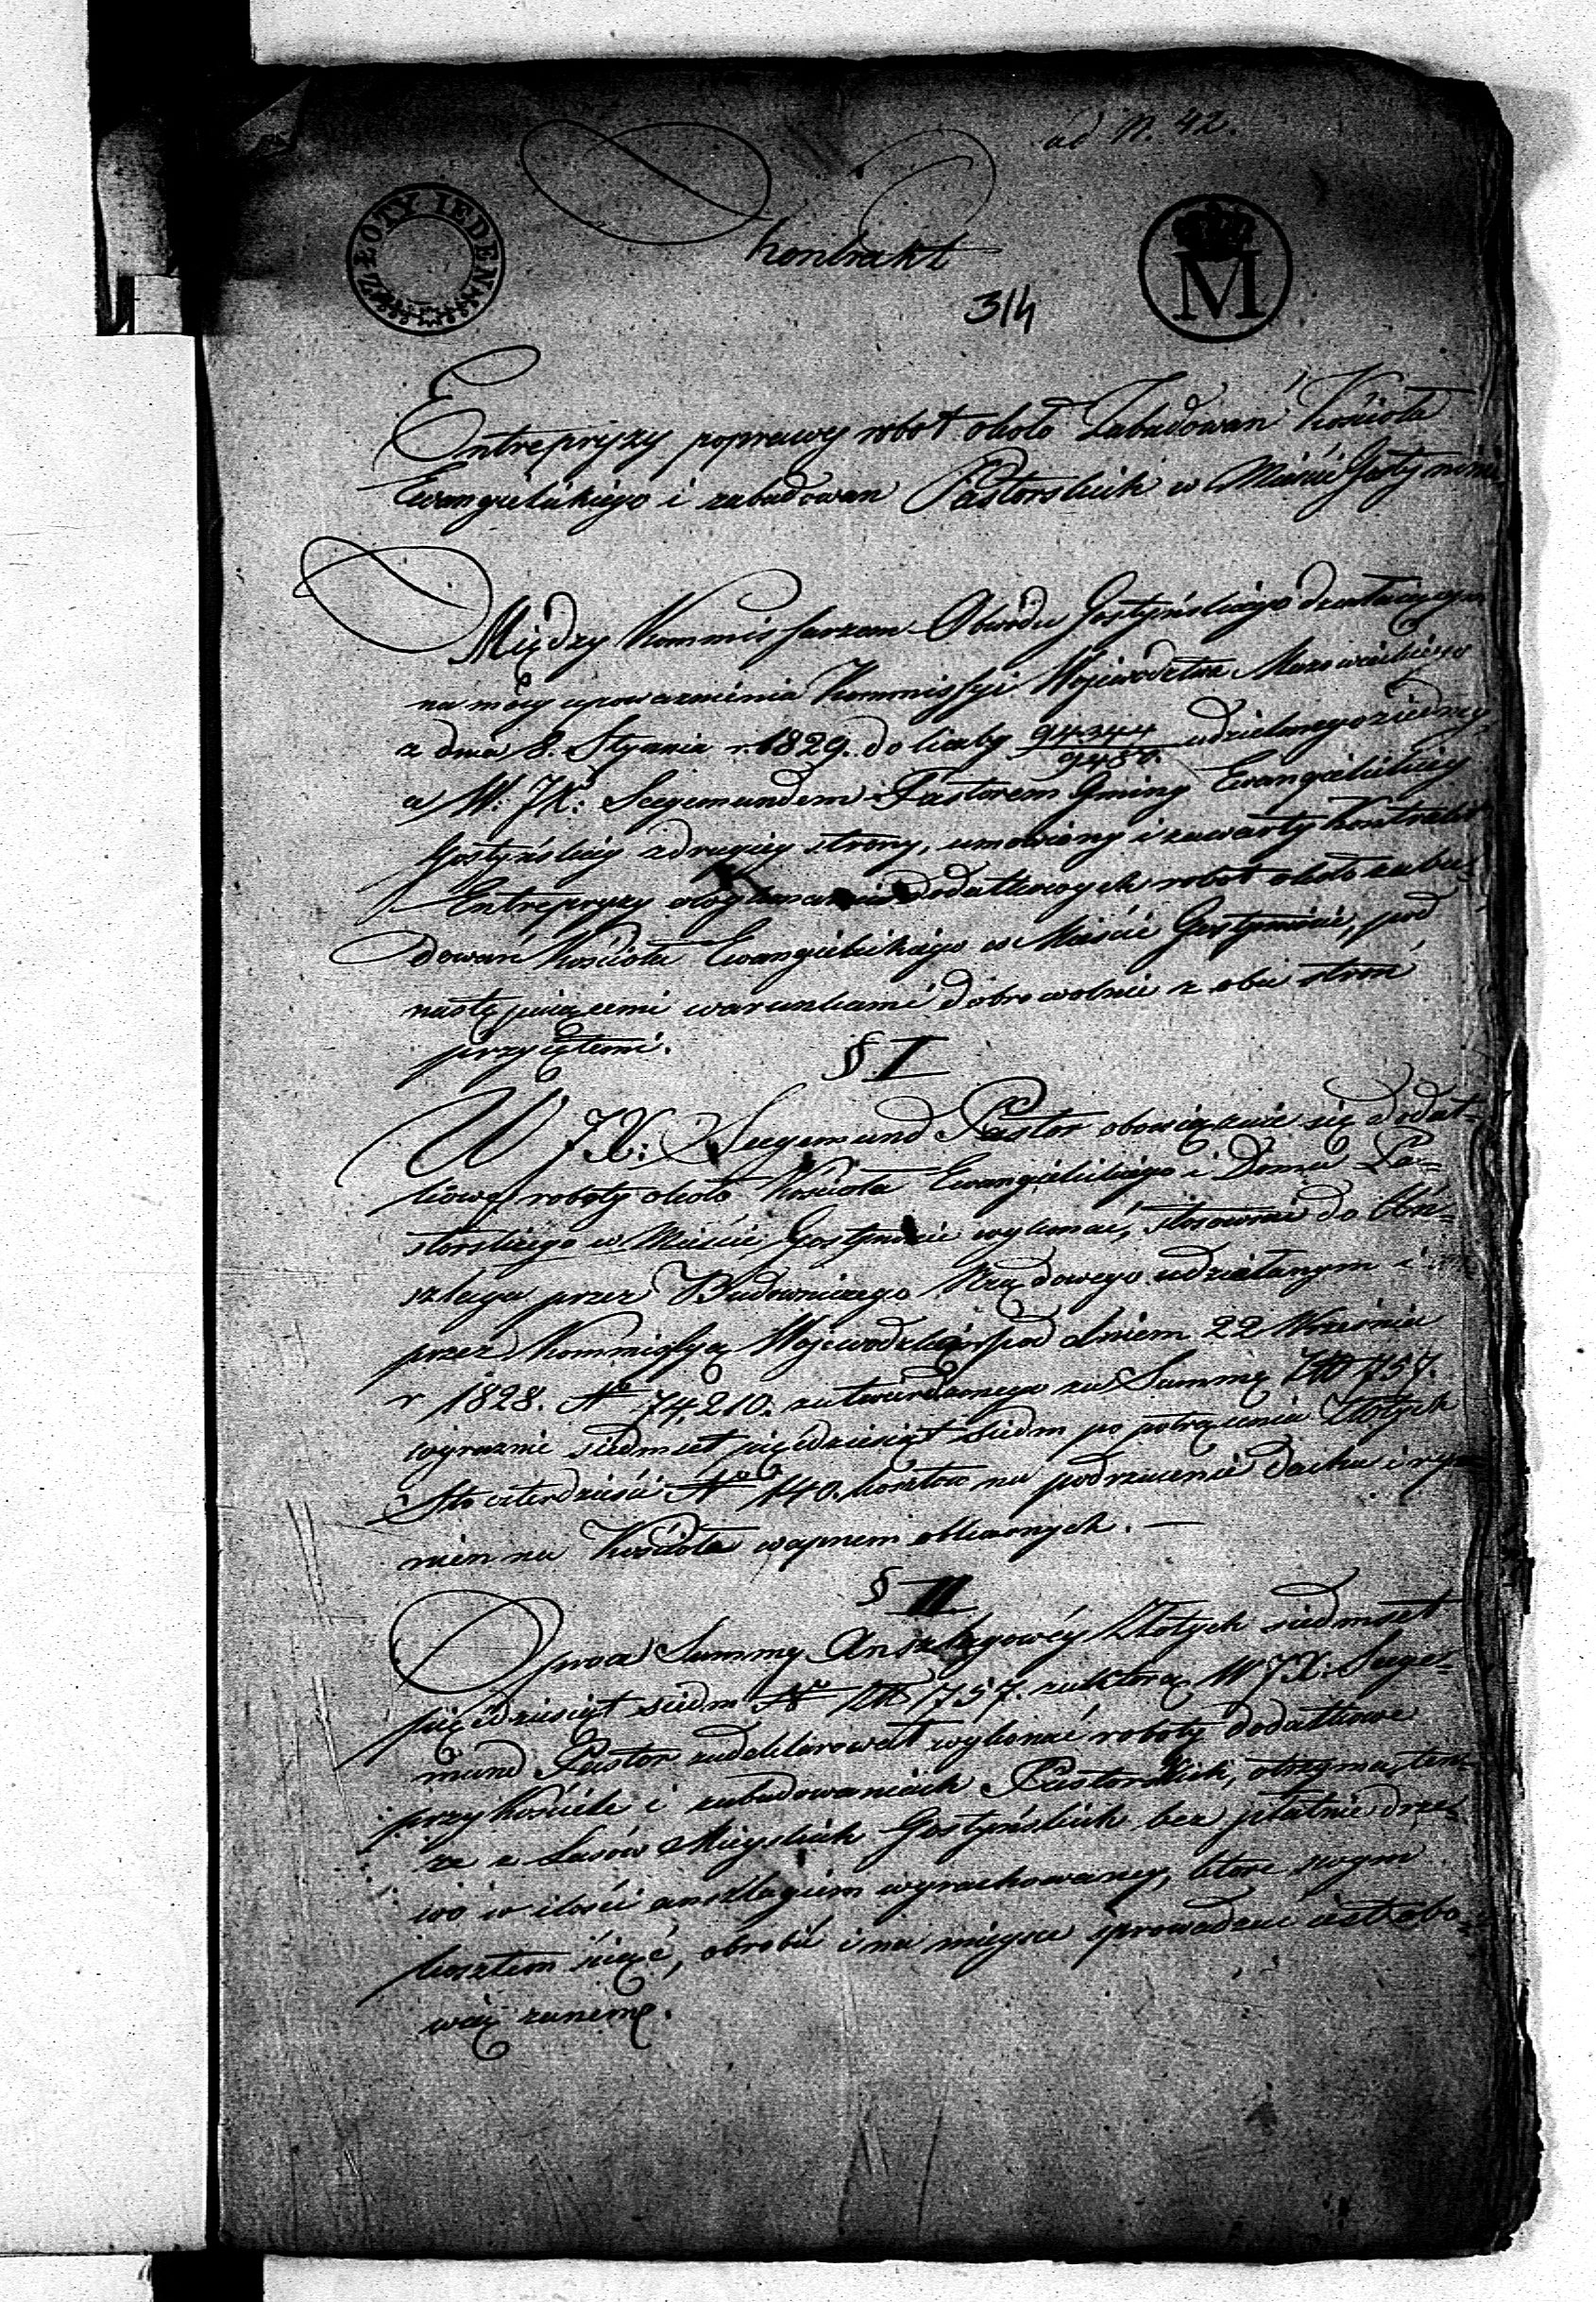 ad N. 42.
ZŁOTY IEDEN
M
Kontrakt
314
Entrepryzy poprawy robot około Zabudowań Kościoła
Ewangielickiego i zabudowan Pastorskich w Mieście Gostyninie
Między Kommissarzem Obwodu Gostyńskiego działaiącym
na mocy upoważnienia Kommissyi Wojewodztwa Mazowieckiego
z dnia 8. Stycznia r. 1829. do liczby 94344/9480. udzielonego z iedney,
a W: JX: Seegemundem Pastorem Gminy Ewangielickiey
Gostyńskiey z drugiey strony, umowiony i zawarty Kontrakt
Entrepryzy wykonania dodatkowych robot około zabu-
dowań Kościoła Ewangielickiego w Mieście Gostyninie, pod
następuiącemi warunkami dobrowolnie z obu stron
przyiętemi.
§ I
W JX: Seegemund Pastor obowięzuie się dodat-
kowe roboty około Kościoła Ewangielickiego i Domu Pa-
storskiego w Mieście Gostyninie wykonać, stosownie do
szlagu przez Budowniczego Rządowego udziałanym i
przez Kommissyą Wojewodzką pod dniem 22 Września
r 1828. No 74,210. zatwierdzonego za Summę Złł 757.
wyraznie siedmset pięćdziesiąt siedm po potrąceniu Złotych
Sto czterdzieści No 140. kosztow na podrzucenie dachu i ry-
nien na Kościele wapnem obliczonych. —
§ II
Oprocz Summy Anszlagowéy Złotych siedmset
pięćdziesiąt siedm No Złł 757. za którą W JX: Seege-
mund Pastor zadeklarował wykonać roboty dodatkowe
przy Kościele i zabudowaniach Pastorskich, otrzyma ten-
że z Lasów Mieyskich Gostyńskich bez płatnie drze-
wo w ilości anszlagiem wyrachowaney, które swym
kosztem ściąć, obrobić i na mieysce sprowadzić iest obo-
wiązanem.